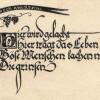 Hier wird gelacht
Hier trägt das Leben
Böse Menschen lachen n
Sie grinsen